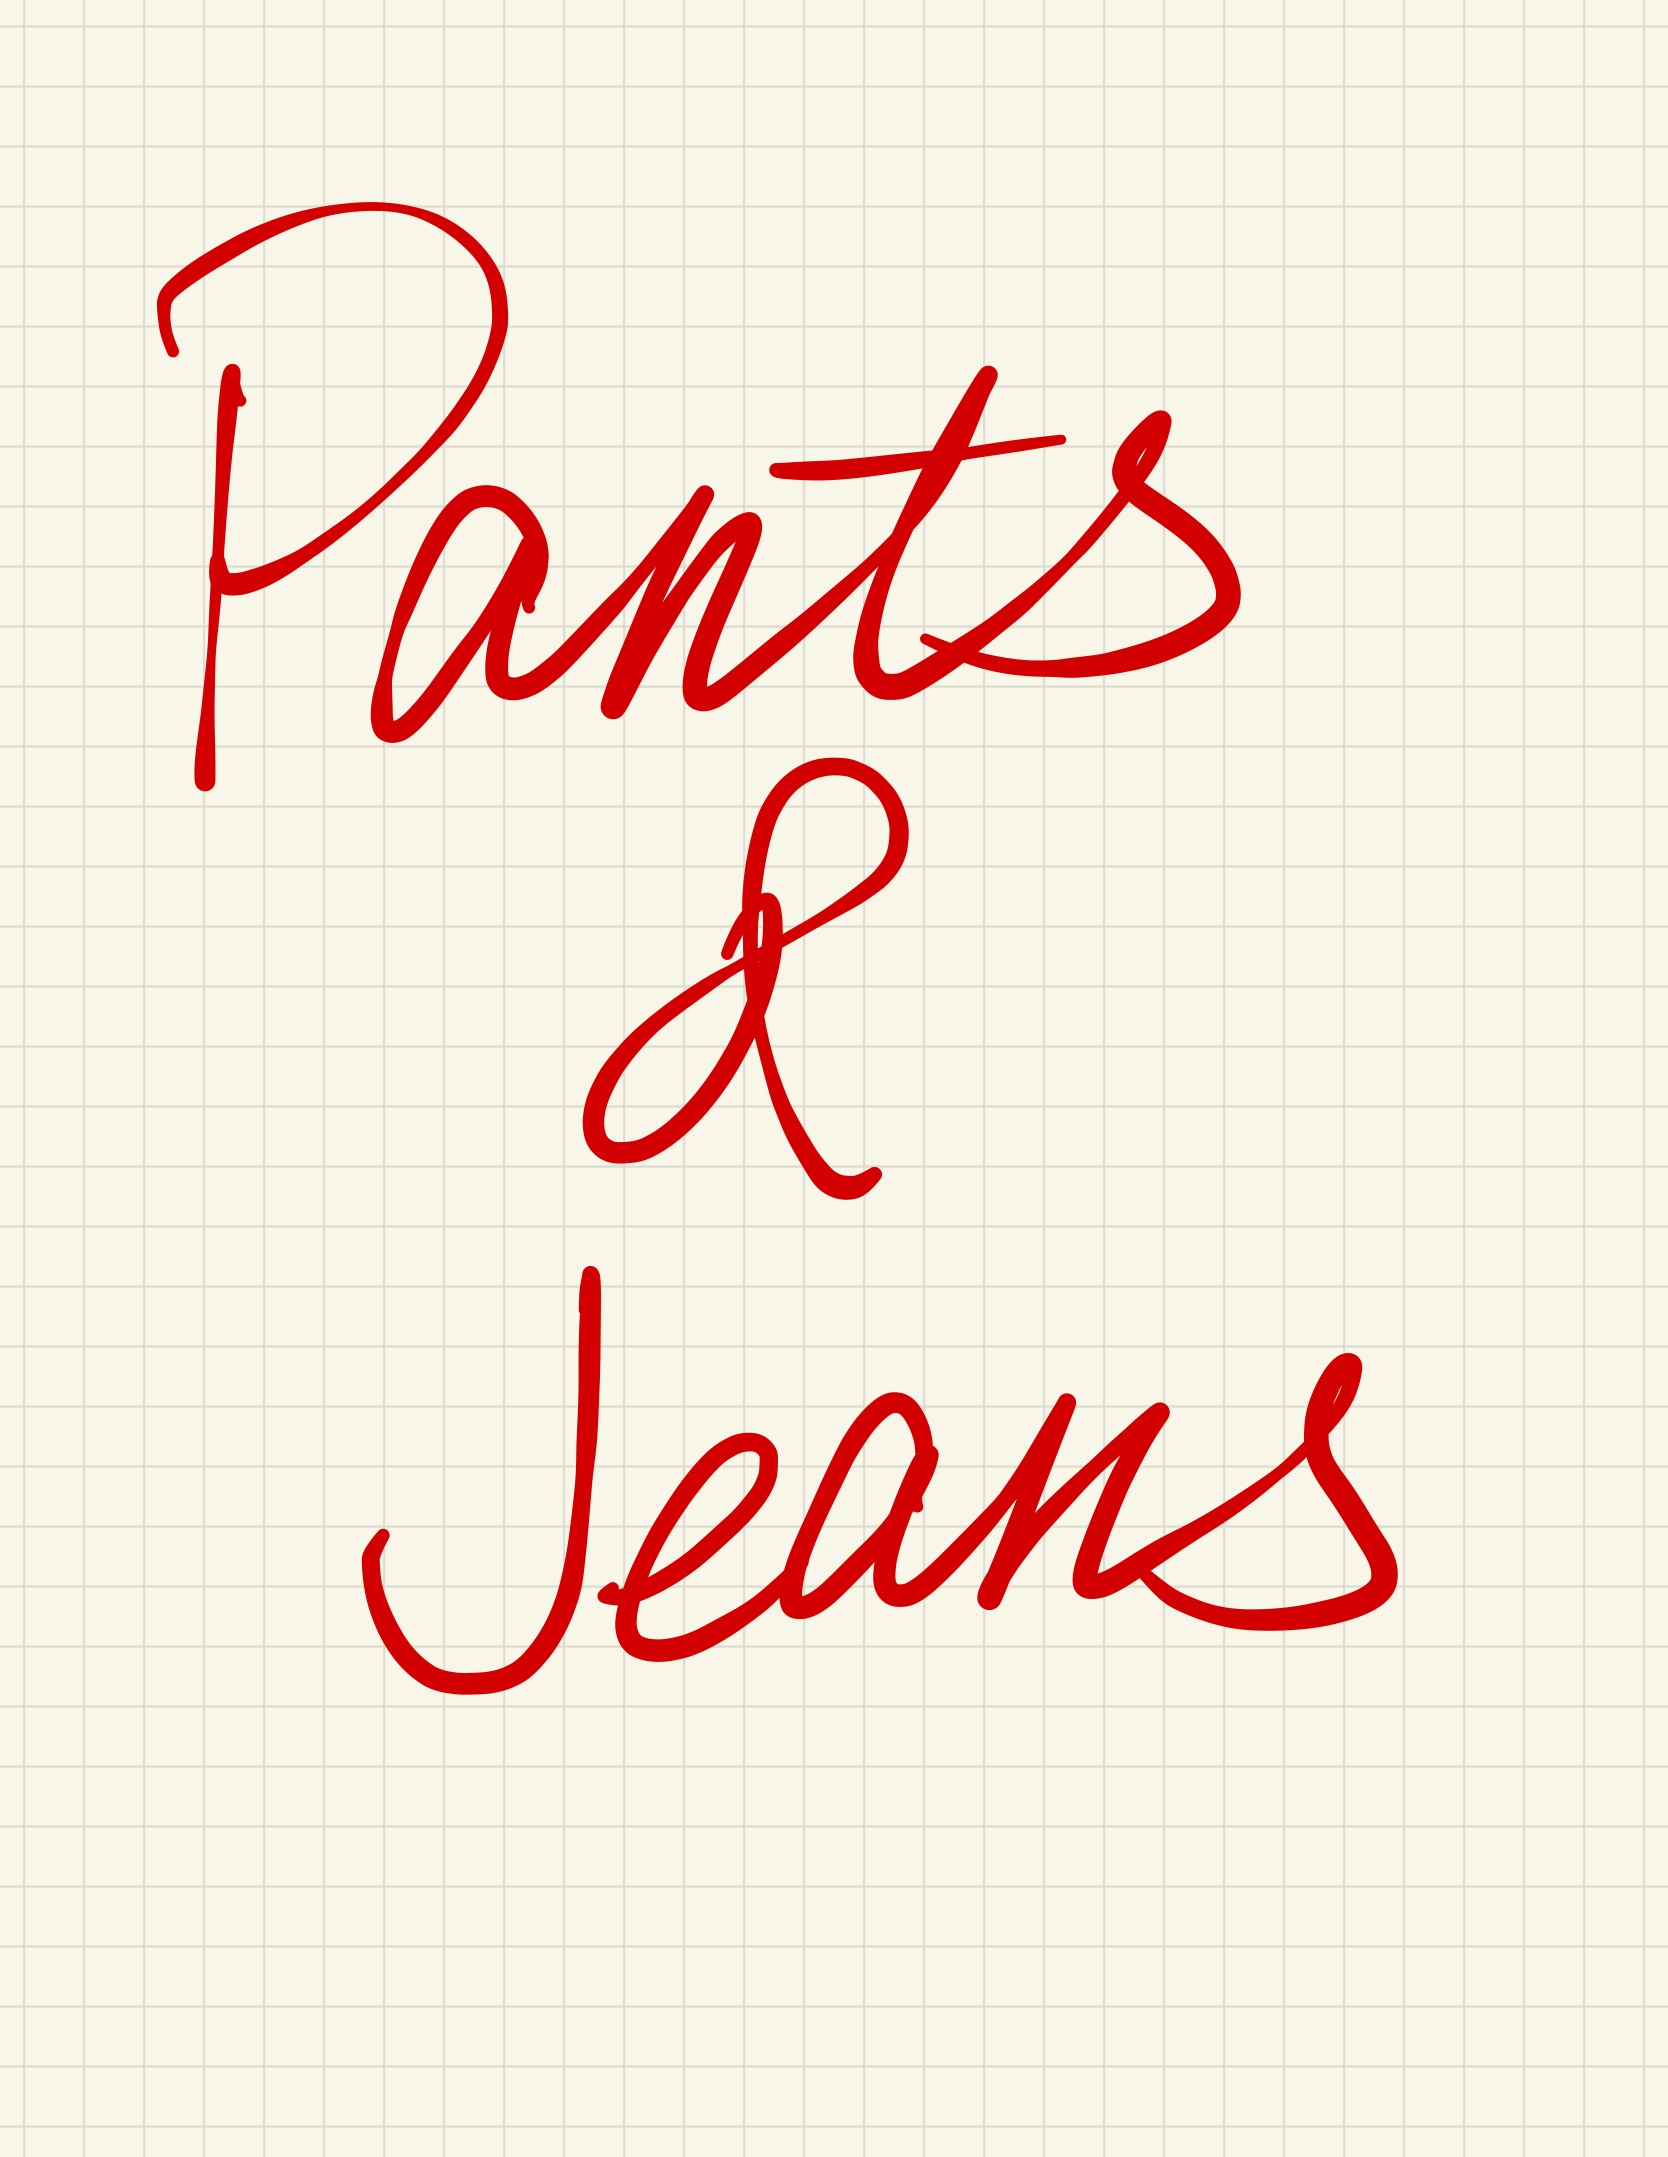 Pants
&
Jeans